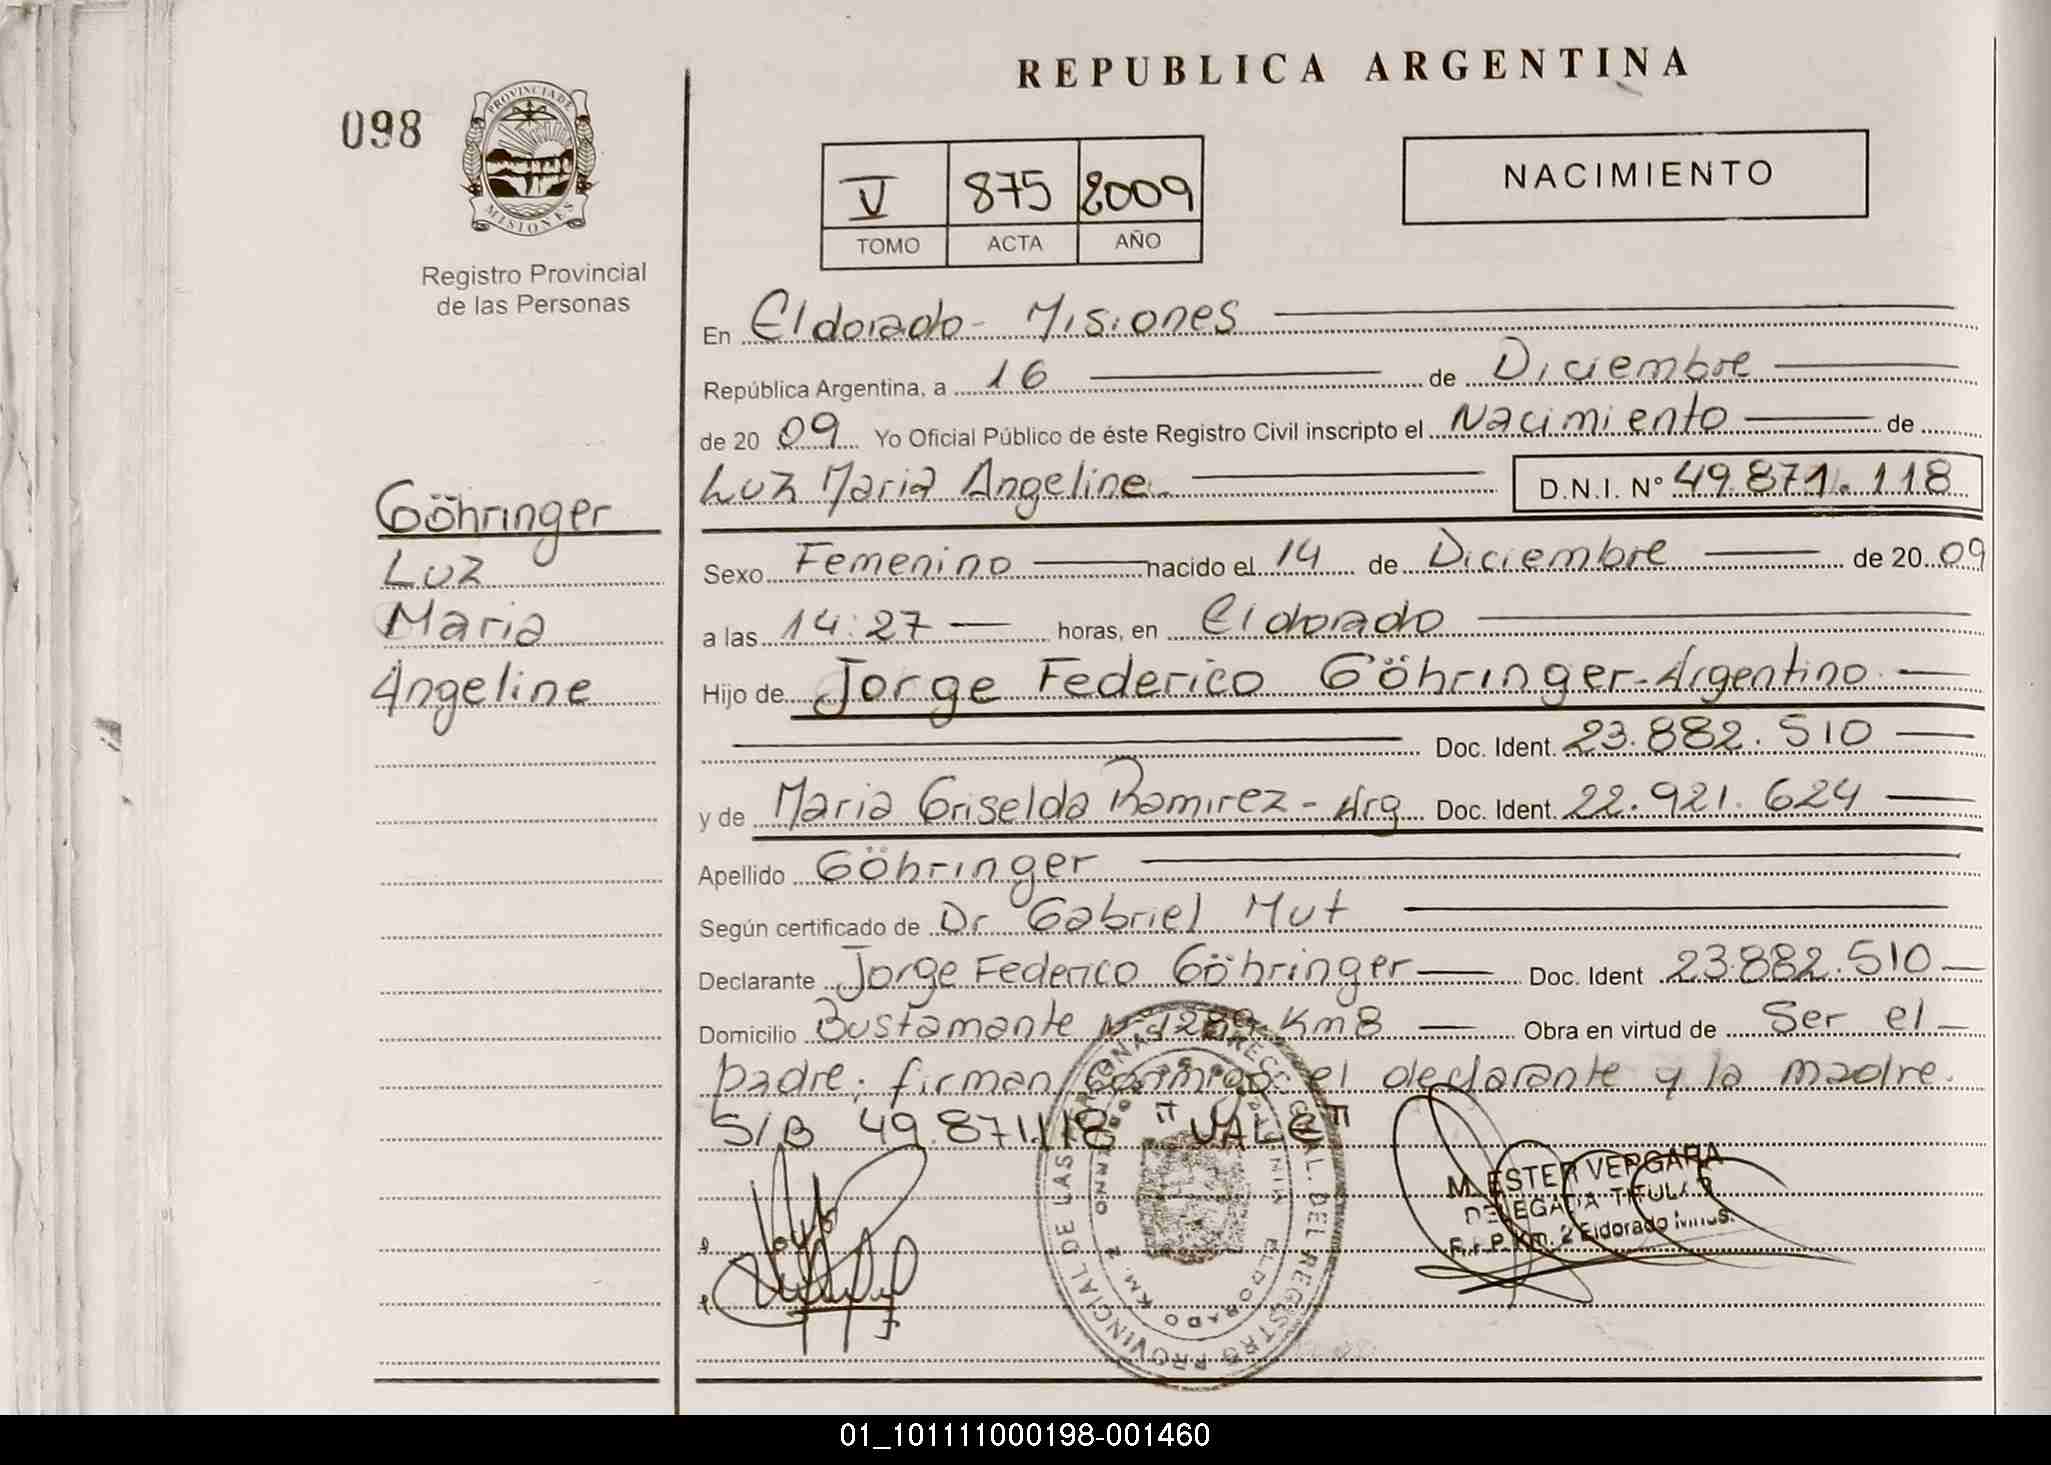 REPUBLICA ARGENTINA
098
PROVINCIA DE
MISIONES
Registro Provincial
de las Personas
V 875 2009
TOMO ACTA AÑO
NACIMIENTO
En Eldorado - Misiones
República Argentina, a 16 de Diciembre
de 20 09 Yo Oficial Público de éste Registro Civil inscripto el Nacimiento de
Luz Maria Angeline D.N.I. N° 49.871.118
Göhringer
Luz
Maria
Angeline
Sexo Femenino nacido el 14 de Diciembre de 20 09
a las 14:27 horas, en Eldorado
Hijo de Jorge Federico Göhringer - Argentino
Doc. Ident. 23.882.510
y de Maria Griselda Ramirez - Arg Doc. Ident. 22.921.624
Apellido Göhringer
Según certificado de Dr Gabriel Mut
Declarante Jorge Federico Göhringer Doc. Ident 23.882.510
Domicilio Bustamante N° 1289 Km 8 Obra en virtud de Ser el
padre; firman conmigo el declarante y la madre.
S/B 49.871118 "VALE"
M. ESTER VERGARA
DELEGADA TITULAR
Km. 2 Eldorado
PROVINCIAL DE LAS
DEL REGISTRO
ELDORADO KM. 2
01_101111000198-001460